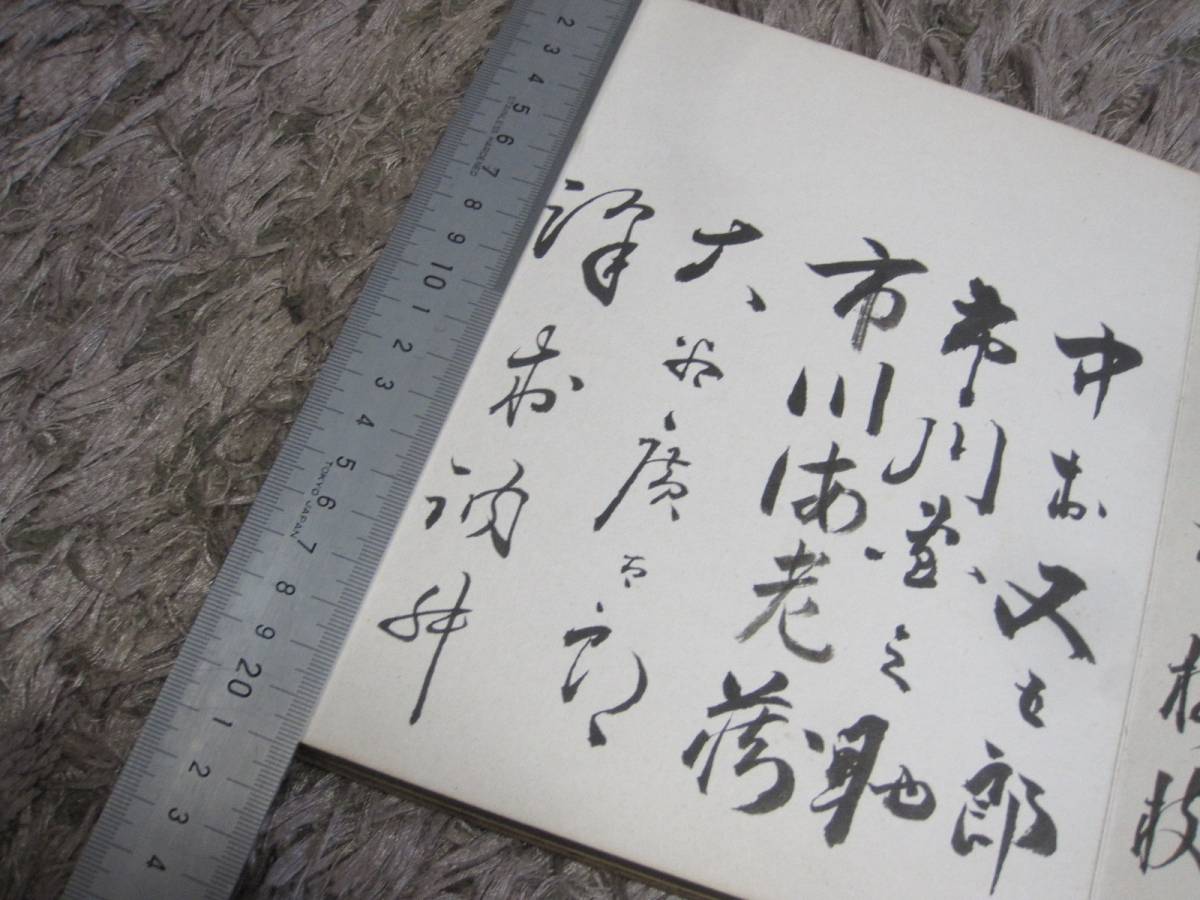 中村又五郎
市川莚之助
市川海老蔵
大谷廣太郎
澤村訥升
枝
2 3 4 5 6 7 8 9 10 1 2 3 4 5 6 7 8 9 20 1 2 3 4
STAINLESS HARDENED
TOKYO JAPAN